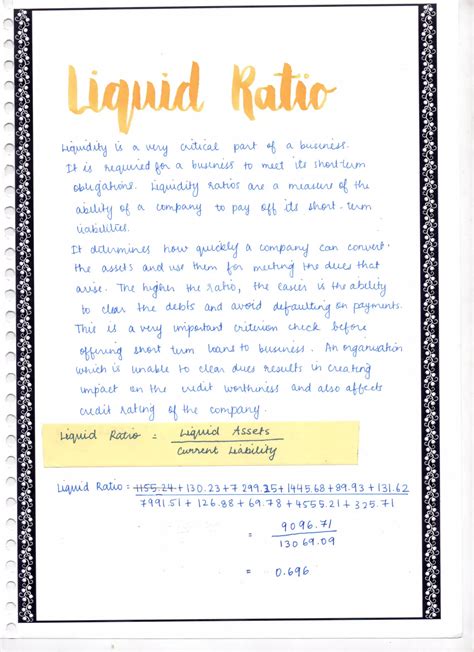 Liquid Ratio
Liquidity is a very critical part of a business.
It is required for a business to meet its short-term
obligations. Liquidity ratios are a measure of the
ability of a company to pay off its short-term
liabilities.
It determines how quickly a company can convert
the assets and use them for meeting the dues that
arise. The higher the ratio, the easier is the ability
to clear the debts and avoid defaulting on payments.
This is a very important criterion check before
offering short term loans to business. An organisation
which is unable to clear dues results in creating
impact on the credit worthiness and also affects
credit rating of the company.
Liquid Ratio = Liquid Assets
Current Liability
Liquid Ratio: 1155.24+130.23+7299.35+1445.68+89.93+131.62
7991.51+126.88+69.78+4555.21+325.71
= 9096.71
13069.09
= 0.696